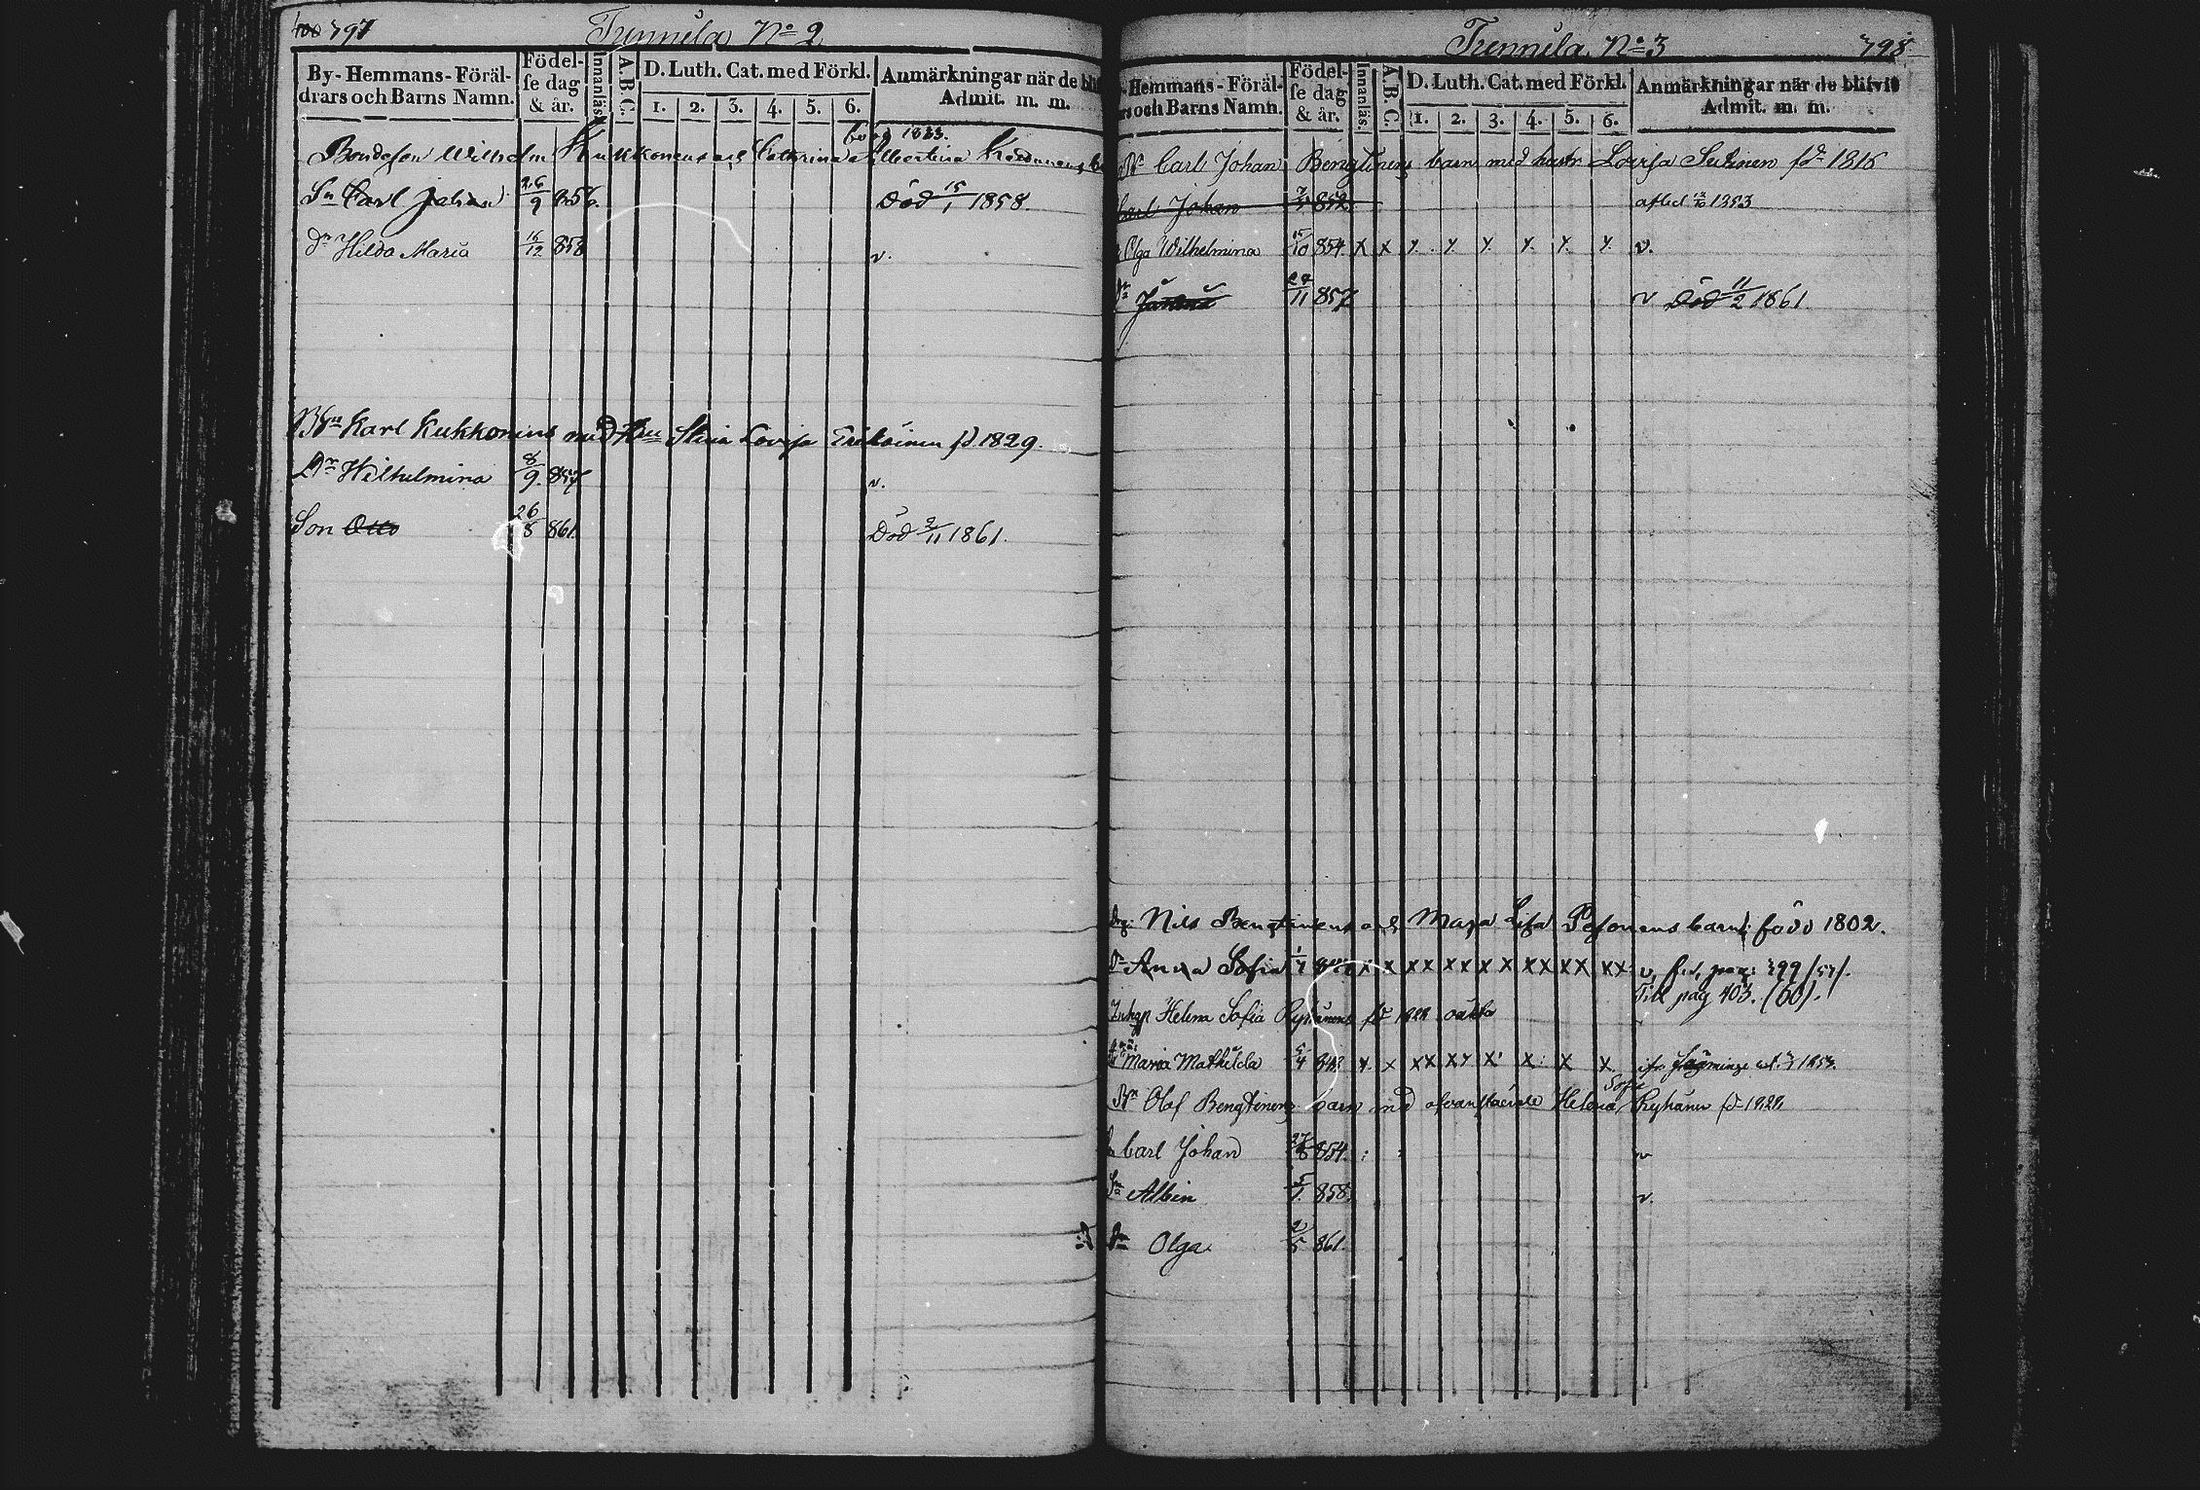 797
Tremula No 2
By-Hemmans-Föräl-
drars och Barns Namn.
Födel-
se dag
& år.
Innanläs.
A. B. C.
D. Luth. Cat. med Förkl.
1. 2. 3. 4. 5. 6.
Anmärkningar när de bli
Admit. m. m.
född 1833.
Bondeson Wilhelm Kukkonens och Cathrina Albertina
Sn Carl Johan 26/9 856. Död 15/1 1858.
Dr Hilda Maria 16/12 858 v.
Karl Kukkonens med Hu Stina Lovisa fd 1829.
Dr Wilhelmina 8/9. 857 v.
Son Otto 26/8 861. Död 2/11 1861.
Tremula No 3
798
Hemmans-Föräl-
rs och Barns Namn.
Födel-
se dag
& år.
Innanläs.
A. B. C.
D. Luth. Cat. med Förkl.
1. 2. 3. 4. 5. 6.
Anmärkningar när de blifvit
Admit. m. m.
Carl Johan Bengtinens barn med hustr Lovisa fd 1816
Carl Johan 852. 1853
Olga Wilhelmina 15/10 854. x x x x x x x x v.
Dr 857 v Död 11/2 1861.
Nils Bengtinens och Maja Lisa Pesonens barn: född 1802.
Dr Anna Sofia x x xx xx x x xx xx xx v, pag: 799/57/.
Till pag 403. (60).
Inhyp Helena Sofia fd 1828 oäkta
Maria Mathilda 5/4 843 x x xx xx x x x x
Sofia
Bn Olof Bengtinens barn med ofvanstående Helena Ryhänen fd 1828
Carl Johan 854. v
Sn Albin 858. v.
Dr Olga 2/5 861.